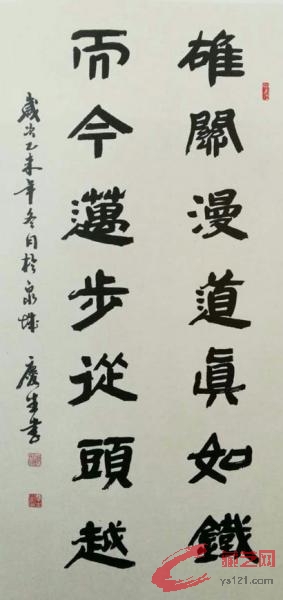 雄關漫道眞如鐵
而今邁步從頭越
歲次乙未年冬月於泉城 慶生書
ys121.com